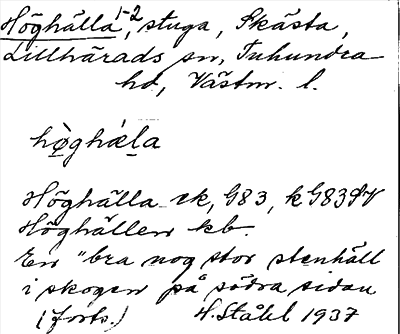 Höghälla 1-2, stuga, Skästa,
Lillhärads sn, Tuhundra
hd, Västm. l.
hø̀ghǽla
Höghälla ek, G83, k G83 SV
Höghällen kb.
En "bra nog stor stenhäll
i skogen på södra sidan
(forts.) H. Ståhl 1937